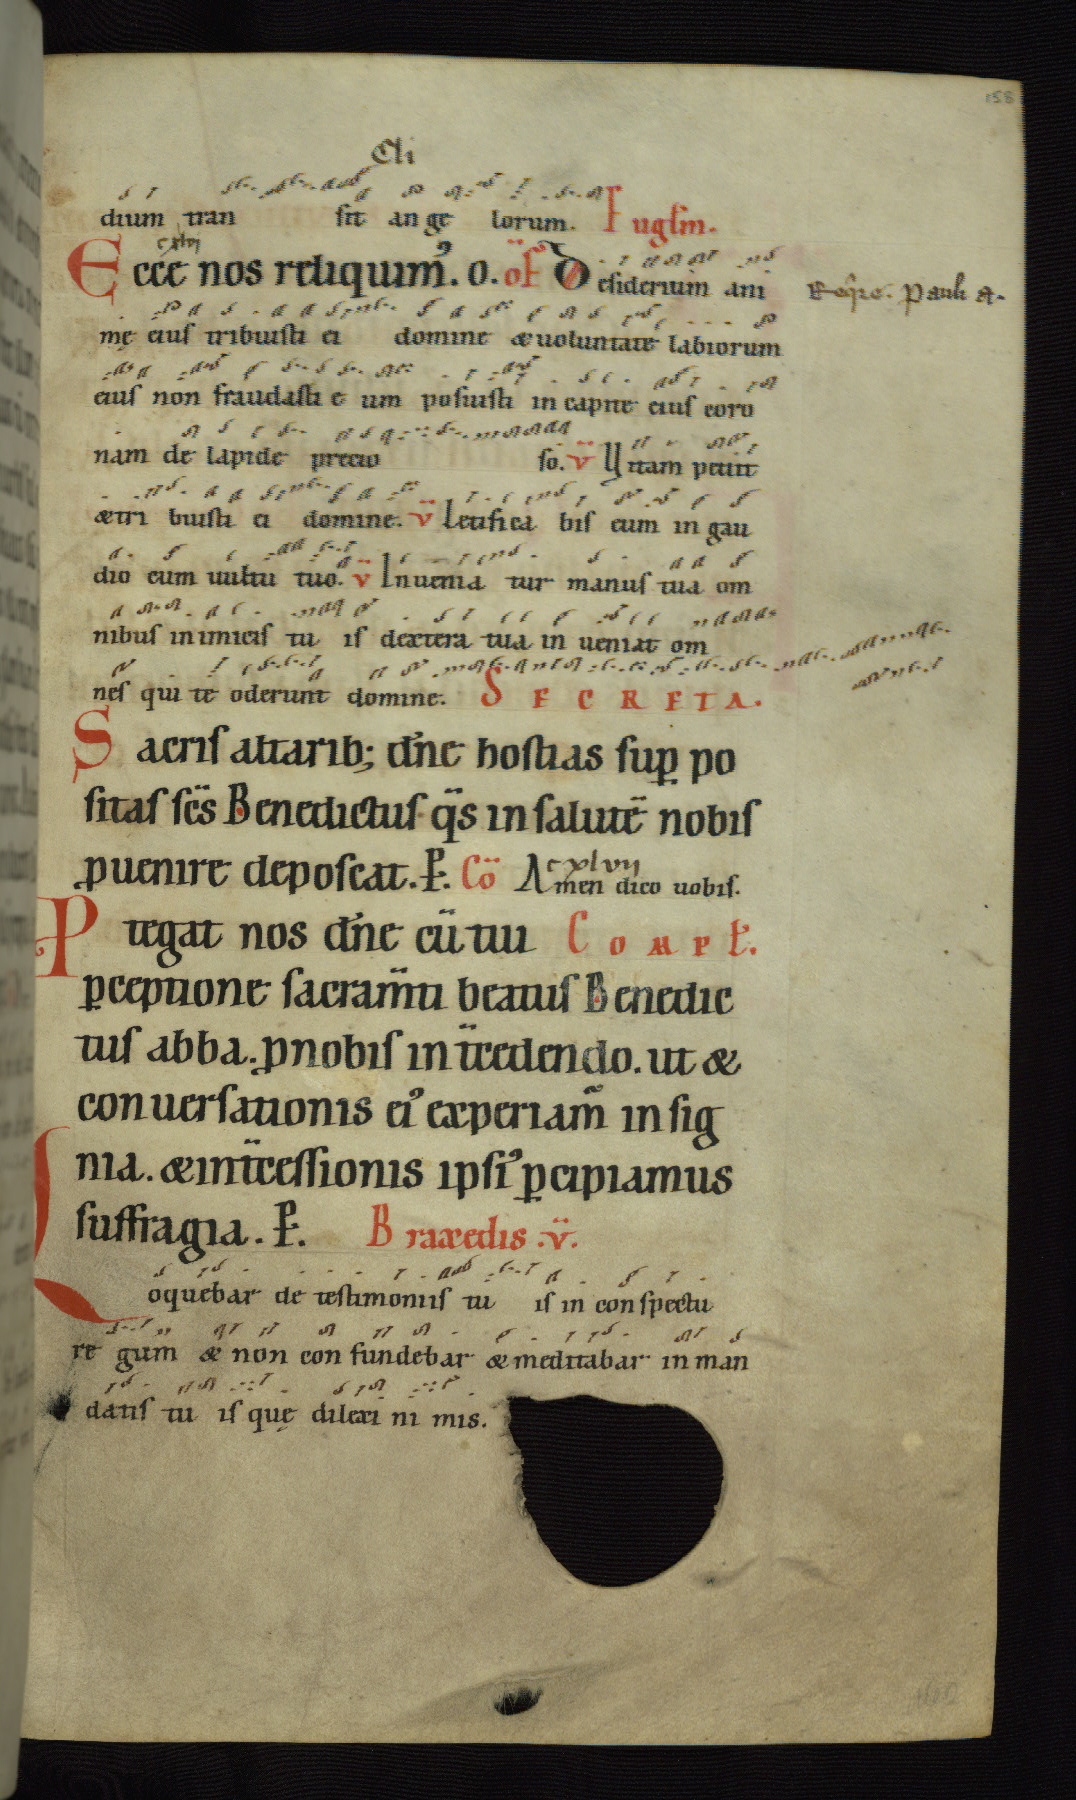 158
Cli
dium tran sit an ge lorum. Euglm.
cxlvj
Ecce nos reliquim᷒. o. of Desiderium ani
Req̄re. Pauli a.
mę eius tribuisti ei domine & uoluntate labiorum
eius non fraudasti e um posuisti in capite eius coro
nam de lapide precio so. v̈ Vitam petiit
& tri buisti ei domine. v̈ Letifica bis eum in gau
dio cum uultu tuo. v̈ Inuenia tur manus tua om
nibus inimicis tu is dextera tua in ueniat om
nes qui te oderunt domine. SECRETA.
Sacris altarib; dn̄e hostias sup̱ po
sitas sc̄s Benedictus q̄s in salutē nobis
ꝓuenire deposcat. P. Cō Amen dico uobis.
cxlvij
Ptegat nos dn̄e cū tui Compł.
p̱ceptione sacram̄ti beatus Benedic
tus abba. ꝓ nobis int̄cedendo. ut &
conuersationis ei᷒ experiam̄ insig
nia. & int̄cessionis ipsi᷒ p̱cipiamus
suffragia. P. Praxedis. v̈.
Loquebar de testimoniis tu is in conspectu
re gum & non confundebar & meditabar in man
datis tu is quę dilexi ni mis.